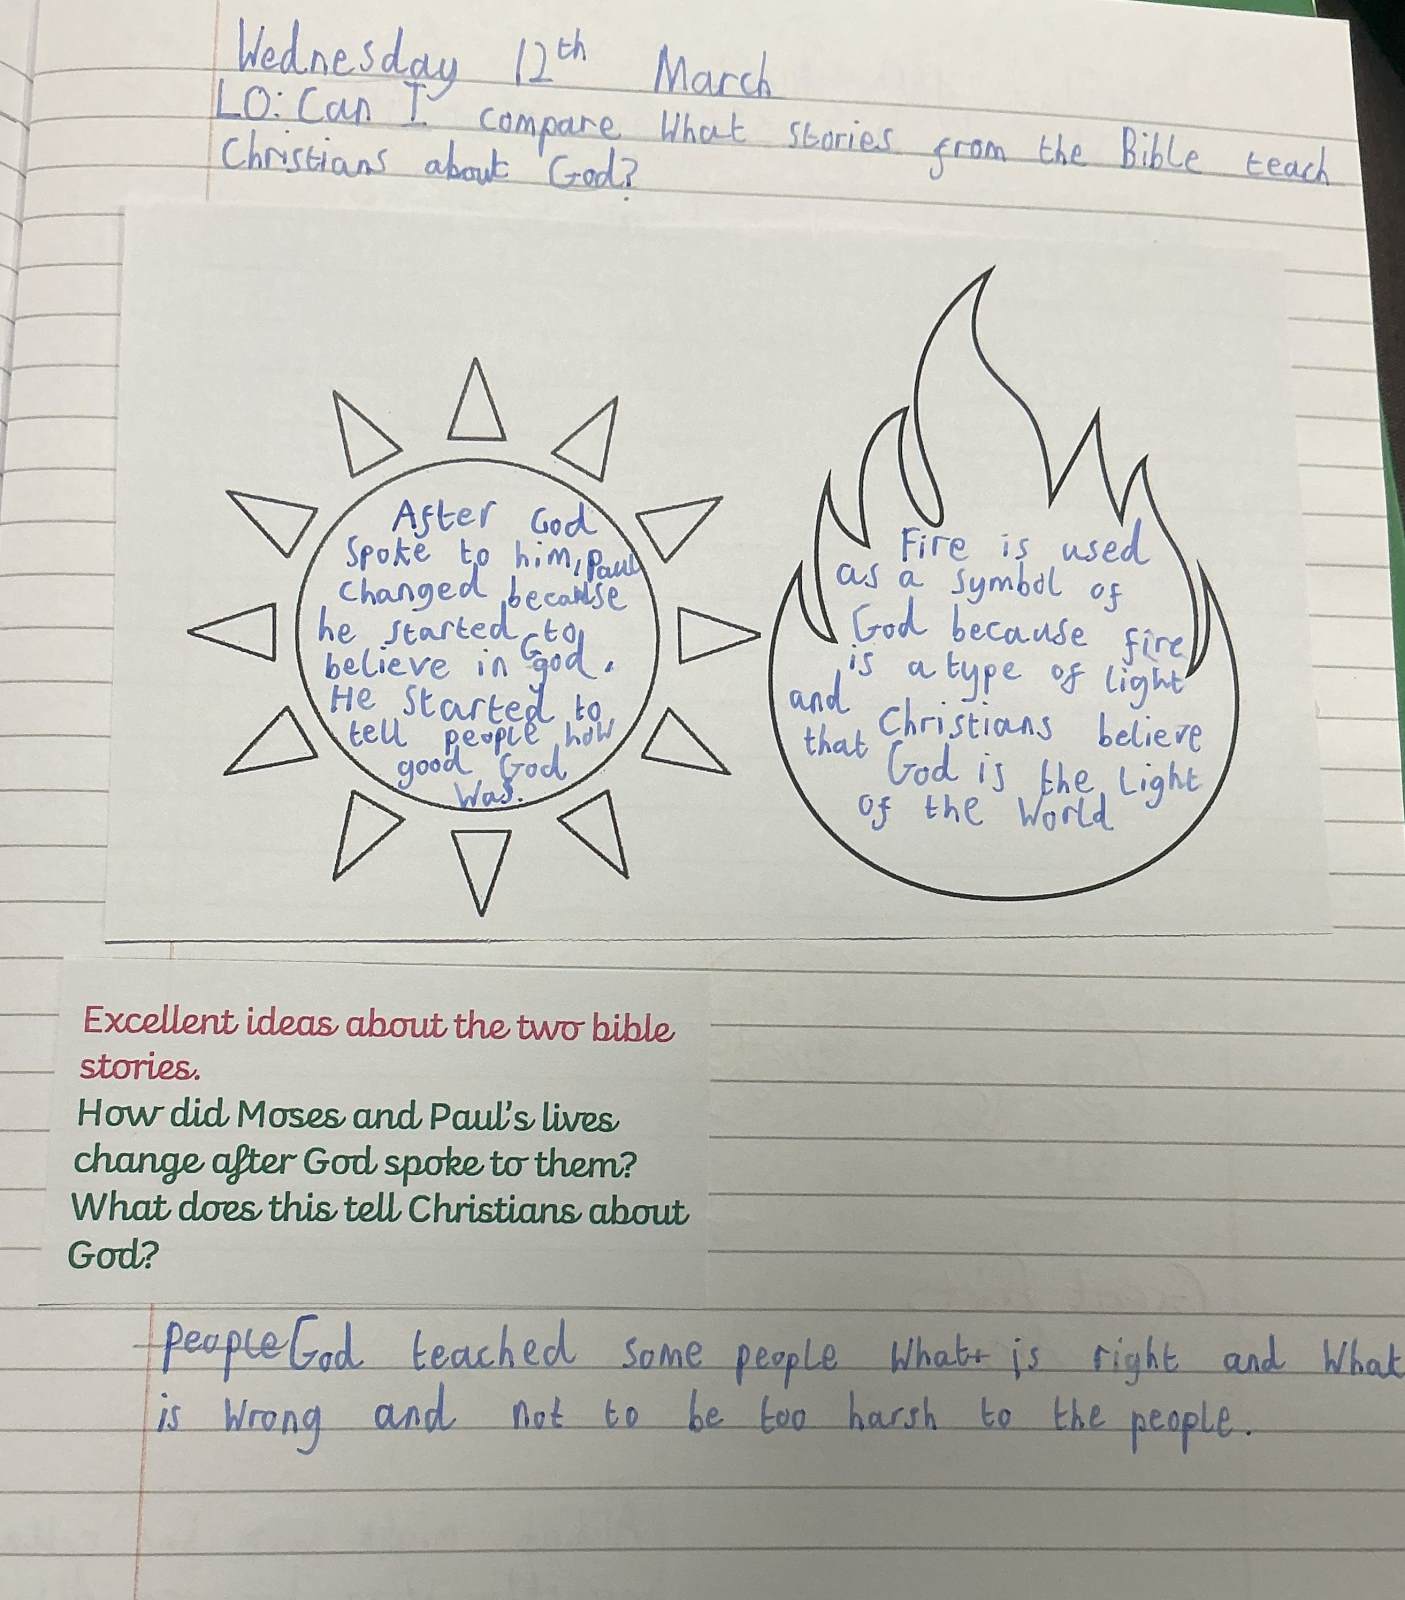 Wednesday 12th March
LO: Can I compare What stories from the Bible teach
Christians about God?
After God
Spoke to him, Paul
changed because
he started to
believe in God.
He Started to
tell people how
good God
Was.
Fire is used
as a symbol of
God because fire
is a type of light
and Christians believe
that God is the Light
of the World
Excellent ideas about the two bible
stories.
How did Moses and Paul's lives
change after God spoke to them?
What does this tell Christians about
God?
people God teached some people What is right and What
is Wrong and not to be too harsh to the people.